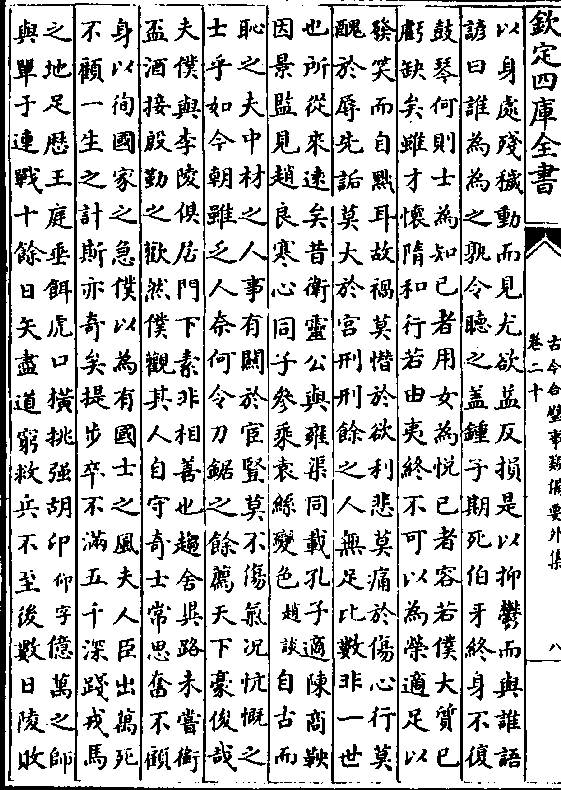 欽定四庫全書
古今合璧事類備要外集
卷二十
八
以身處殘穢動而見尤欲益反損是以抑鬱而與誰語
諺曰誰為為之孰令聽之盖鍾子期死伯牙終身不復
鼓琴何則士為知已者用女為悅已者容若僕大質已
虧缺矣雖才懷隋和行若由夷終不可以為榮適足以
發笑而自點耳故禍莫憯於欲利悲莫痛於傷心行莫
醜於辱先詬莫大於宮刑刑餘之人無足比數非一世
也所從來逺矣昔衛靈公與雍渠同載孔子適陳商鞅
因景監見趙良寒心同子參乘袁絲變色趙談自古而
恥之夫中材之人事有關於宦豎莫不傷氣况忼慨之
士乎如今朝雖乏人奈何令刀鋸之餘薦天下豪俊哉
夫僕與李陵俱居門下素非相善也趨舍異路未嘗銜
盃酒接殷勤之歡然僕觀其人自守奇士常思奮不顧
身以徇國家之急僕以為有國士之風夫人臣出萬死
不顧一生之計斯亦奇矣提步卒不滿五千深踐戎馬
之地足歴王庭垂餌虎口橫挑强胡卬仰字億萬之師
與單于連戰十餘日矢盡道窮救兵不至後數日陵敗